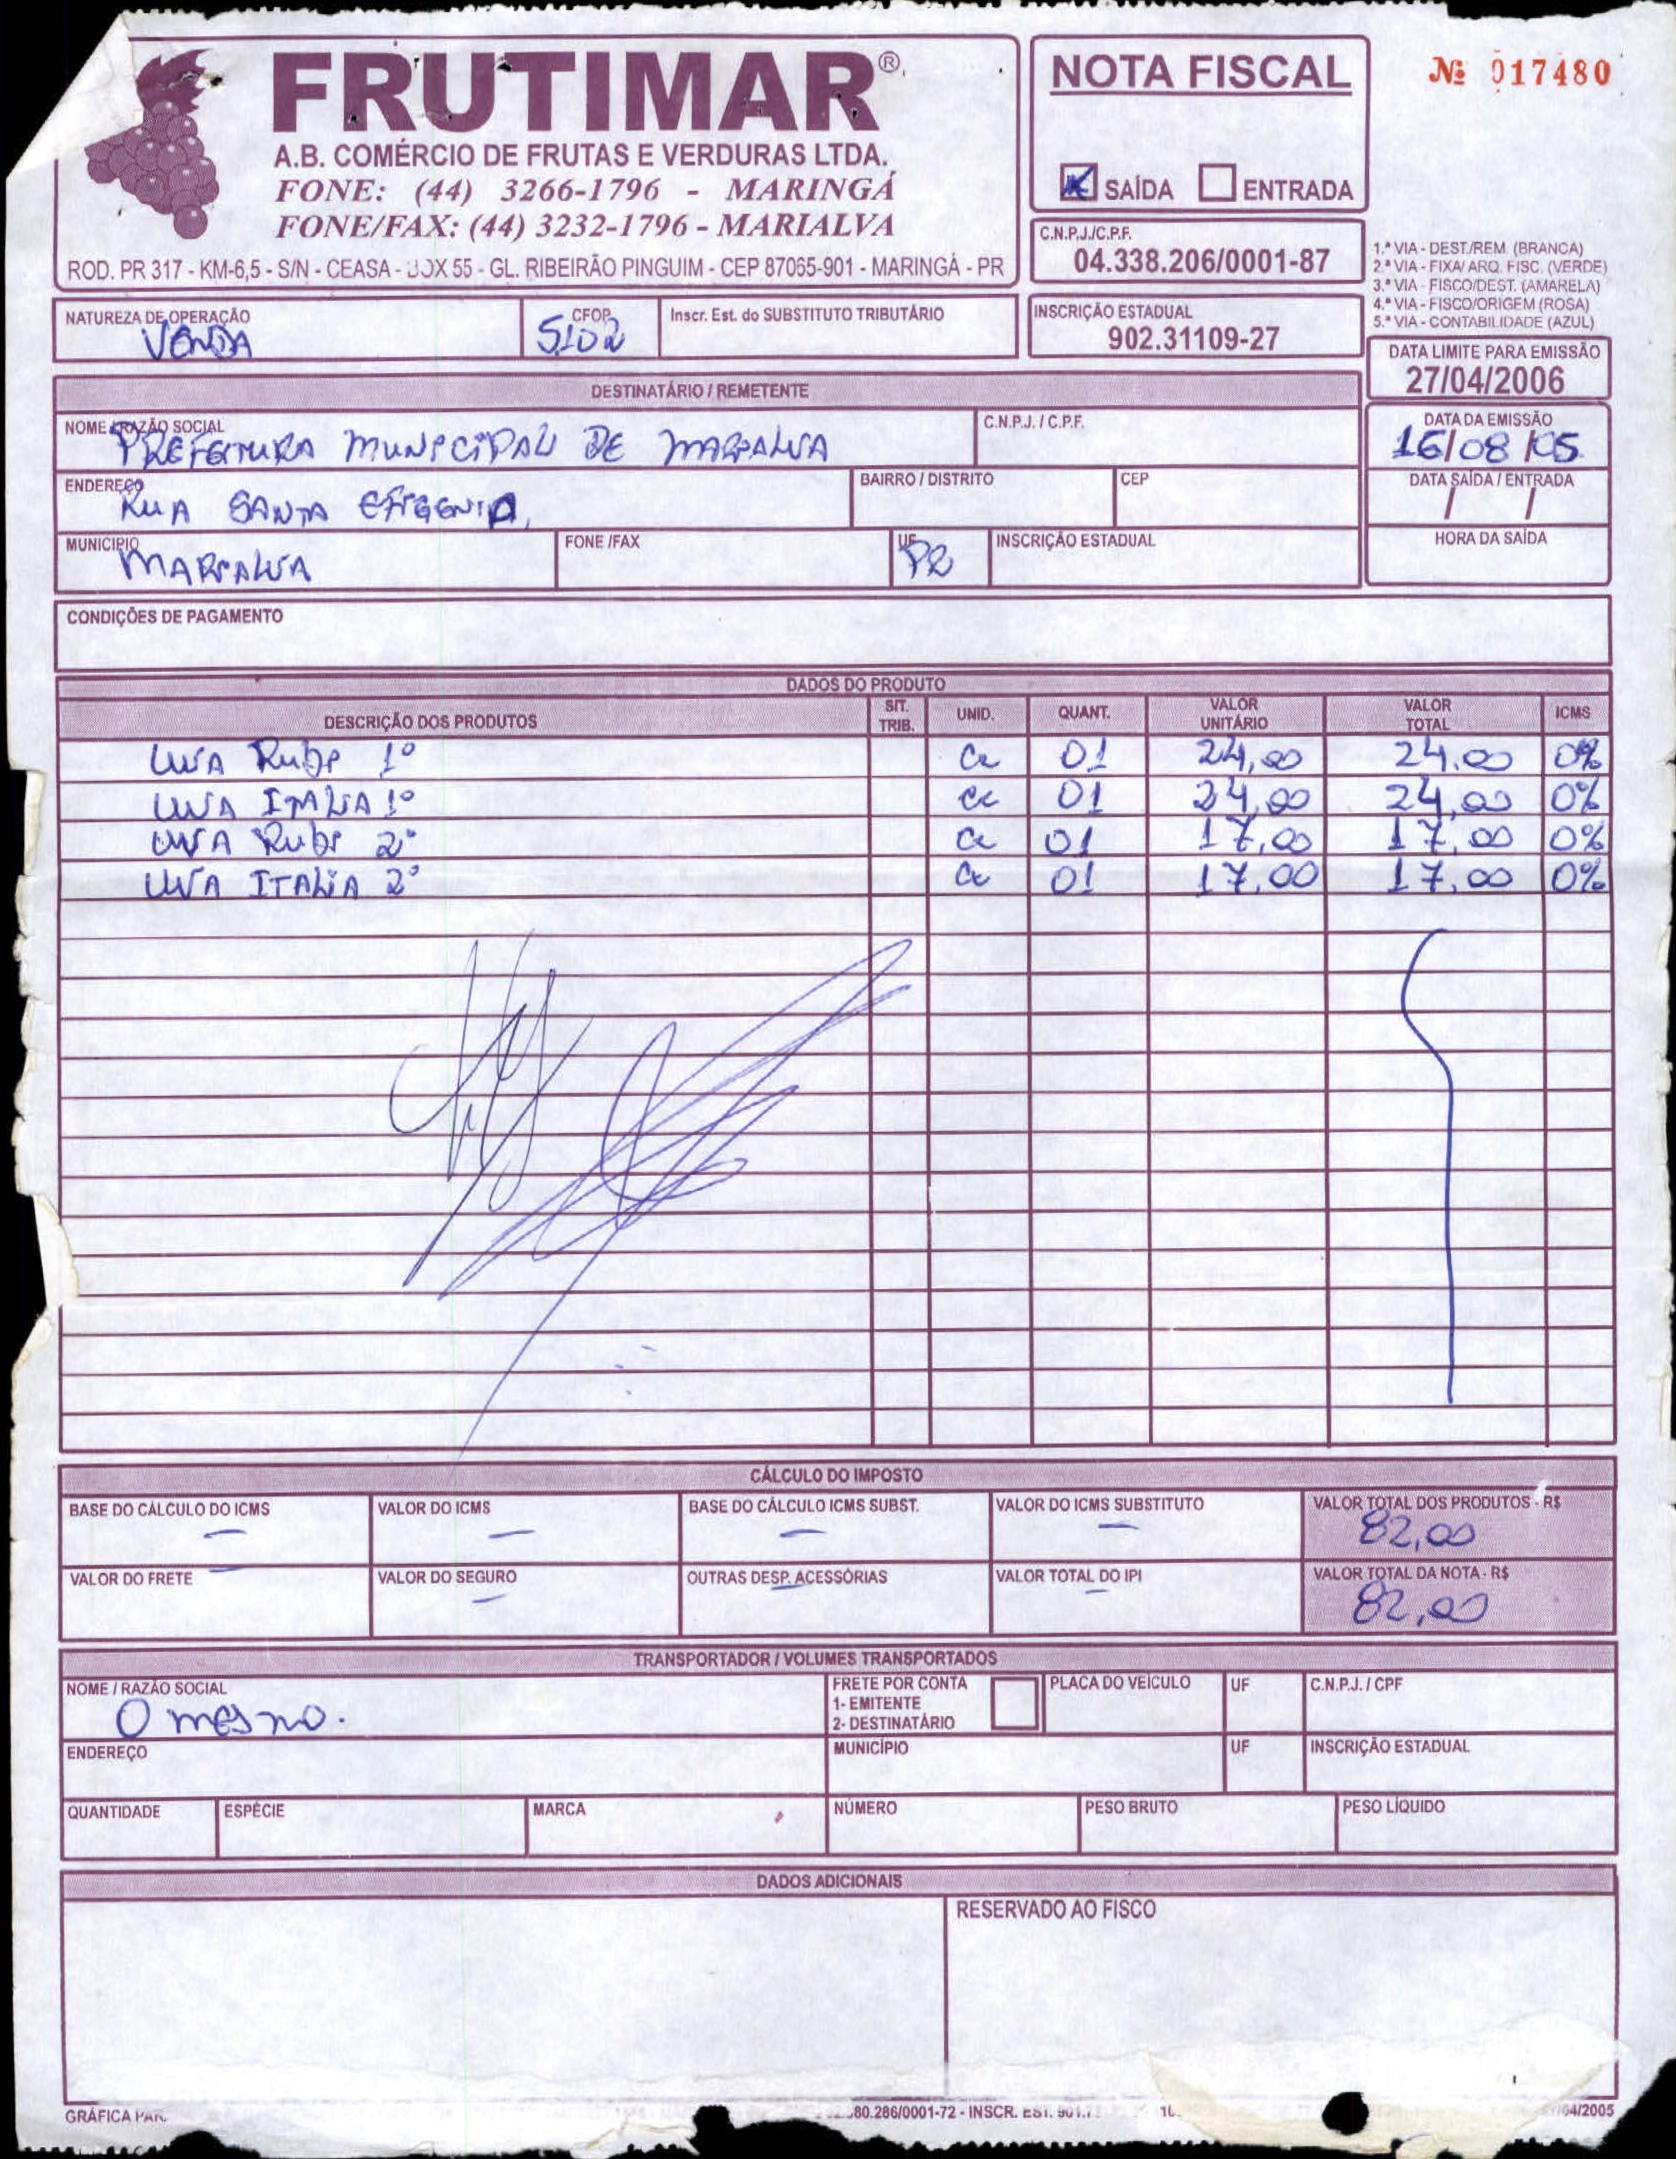 FRUTIMAR®
A.B. COMÉRCIO DE FRUTAS E VERDURAS LTDA.
FONE: (44) 3266-1796 - MARINGÁ
FONE/FAX: (44) 3232-1796 - MARIALVA
ROD. PR 317 - KM-6,5 - S/N - CEASA - BOX 55 - GL. RIBEIRÃO PINGUIM - CEP 87065-901 - MARINGÁ - PR
NOTA FISCAL
SAÍDA ENTRADA
Nº 017480
C.N.P.J./C.P.F.
04.338.206/0001-87
1.ª VIA - DEST./REM. (BRANCA)
2.ª VIA - FIXA/ ARQ. FISC. (VERDE)
3.ª VIA - FISCO/DEST. (AMARELA)
4.ª VIA - FISCO/ORIGEM (ROSA)
5.ª VIA - CONTABILIDADE (AZUL)
NATUREZA DE OPERAÇÃO
VENDA
CFOP
5102
Inscr. Est. do SUBSTITUTO TRIBUTÁRIO
INSCRIÇÃO ESTADUAL
902.31109-27
DATA LIMITE PARA EMISSÃO
27/04/2006
DESTINATÁRIO / REMETENTE
NOME / RAZÃO SOCIAL
PREFEITURA MUNICIPAL DE MARIALVA
C.N.P.J. / C.P.F.
DATA DA EMISSÃO
16/08/05
ENDEREÇO
RUA SANTA EFIGENIA,
BAIRRO / DISTRITO
CEP
DATA SAÍDA / ENTRADA
/ /
MUNICIPIO
MARIALVA
FONE /FAX
UF
PR
INSCRIÇÃO ESTADUAL
HORA DA SAÍDA
CONDIÇÕES DE PAGAMENTO
DADOS DO PRODUTO
DESCRIÇÃO DOS PRODUTOS SIT. TRIB. UNID. QUANT. VALOR UNITÁRIO VALOR TOTAL ICMS
UVA Rubi 1º cx 01 24,00 24,00 0%
UVA ITALIA 1º cx 01 24,00 24,00 0%
UVA Rubi 2º cx 01 17,00 17,00 0%
UVA ITALIA 2º cx 01 17,00 17,00 0%
CÁLCULO DO IMPOSTO
BASE DO CÁLCULO DO ICMS
—
VALOR DO ICMS
—
BASE DO CÁLCULO ICMS SUBST.
—
VALOR DO ICMS SUBSTITUTO
—
VALOR TOTAL DOS PRODUTOS - R$
82,00
VALOR DO FRETE
—
VALOR DO SEGURO
—
OUTRAS DESP. ACESSÓRIAS
—
VALOR TOTAL DO IPI
—
VALOR TOTAL DA NOTA - R$
82,00
TRANSPORTADOR / VOLUMES TRANSPORTADOS
NOME / RAZÃO SOCIAL
O mesmo.
FRETE POR CONTA
1- EMITENTE
2- DESTINATÁRIO
PLACA DO VEÍCULO
UF
C.N.P.J. / CPF
ENDEREÇO
MUNICÍPIO
UF
INSCRIÇÃO ESTADUAL
QUANTIDADE
ESPÉCIE
MARCA
NÚMERO
PESO BRUTO
PESO LÍQUIDO
DADOS ADICIONAIS
RESERVADO AO FISCO
GRÁFICA 80.286/0001-72 - INSCR. EST. /04/2005